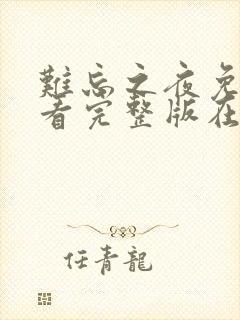 難忘之夜免
看完整版在
任青龍